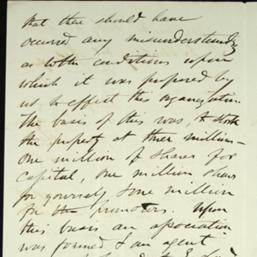 that there should have
occured any misunderstanding
as to the conditions upon
which it was proposed by
us to effect this organization
The basis of this was, to stock
the property at three millions -
One million of shares for
capital, one million shares
for yourself & one million
for the promoters. Upon
this basis an association
was formed & an agent